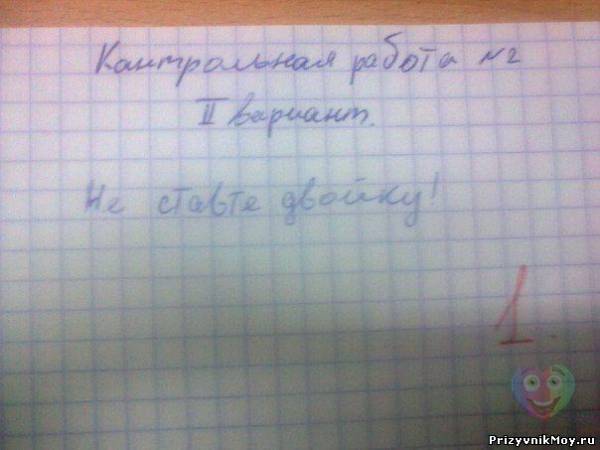 Контрольная работа №2
II вариант.
Не ставте двойку!
1.
PrizyvnikMoy.ru